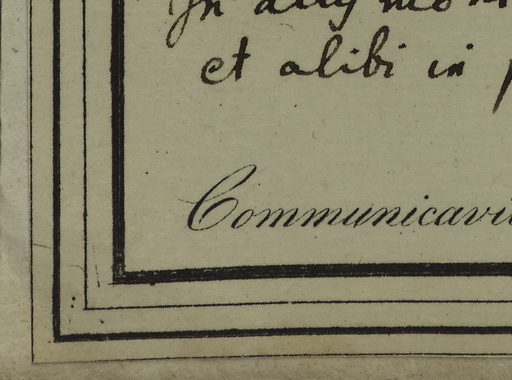 In
et alibi in
Communicavi